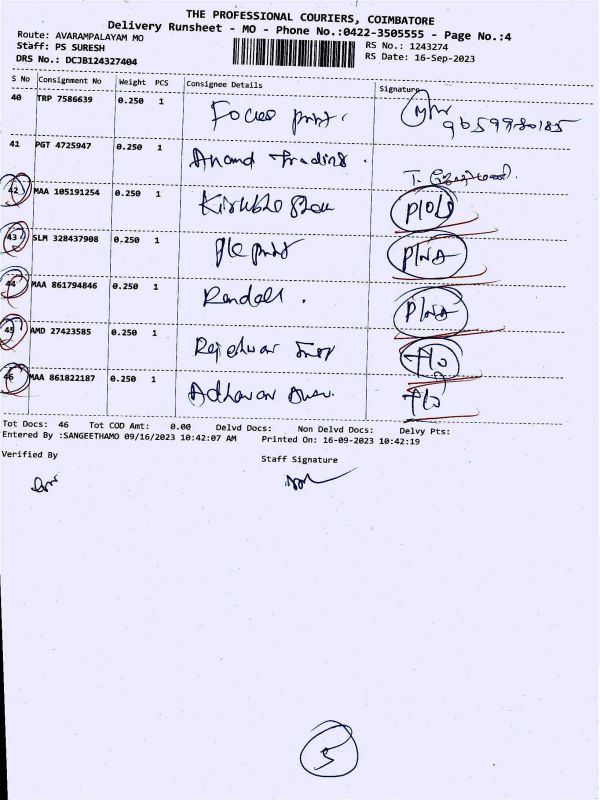 THE PROFESSIONAL COURIERS, COIMBATORE
Delivery Runsheet - MO - Phone No.:0422-3505555 - Page No.:4
Route: AVARAMPALAYAM MO
RS No.: 1243274
Staff: PS SURESH
RS Date: 16-Sep-2023
DRS No.: DCJB124327404
S No Consignment No Weight PCS Consignee Details Signature
40 TRP 7586639 0.250 1 Focus print.
9659980185
41 PGT 4725947 0.250 1 Anand Trading.
42 MAA 105191254 0.250 1
43 SLM 328437908 0.250 1 print P/NA
44 MAA 861794846 0.250 1 Randall. P/NA
45 AMD 27423585 0.250 1
46 MAA 861822187 0.250 1
Tot Docs: 46 Tot COD Amt: 0.00 Delvd Docs: Non Delvd Docs: Delvy Pts:
Entered By :SANGEETHAMO 09/16/2023 10:42:07 AM Printed On: 16-09-2023 10:42:19
Verified By
Staff Signature
5